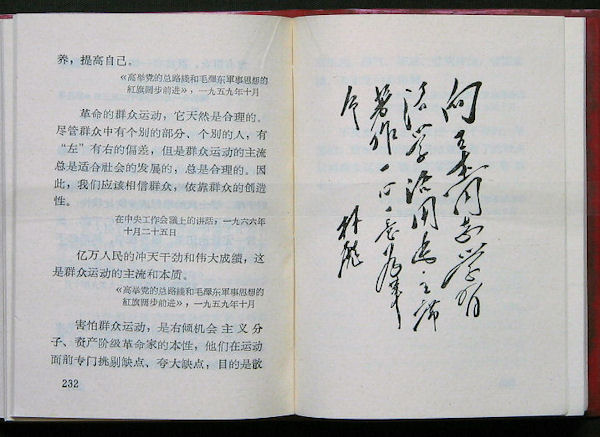 养，提高自己。
《高举党的总路綫和毛澤东軍事思想的
紅旗闊步前进》，一九五九年十月
革命的群众运动，它天然是合理的。
尽管群众中有个别的部分、个别的人，有
“左”有右的偏差，但是群众运动的主流
总是适合社会的发展的，总是合理的。因
此，我们应该相信群众，依靠群众的创造
性。
在中央工作会議上的讲話，一九六六年
十月二十五日
亿万人民的冲天干劲和伟大成绩，这
是群众运动的主流和本质。
《高举党的总路綫和毛澤东軍事思想的
紅旗闊步前进》，一九五九年十月
害怕群众运动，是右倾机会主义分
子、资产阶级革命家的本性，他们在运动
面前专门挑剔缺点、夸大缺点，目的是散
232
向王杰同志学习
活学活用毛主席
著作一心一意为革
命
林彪